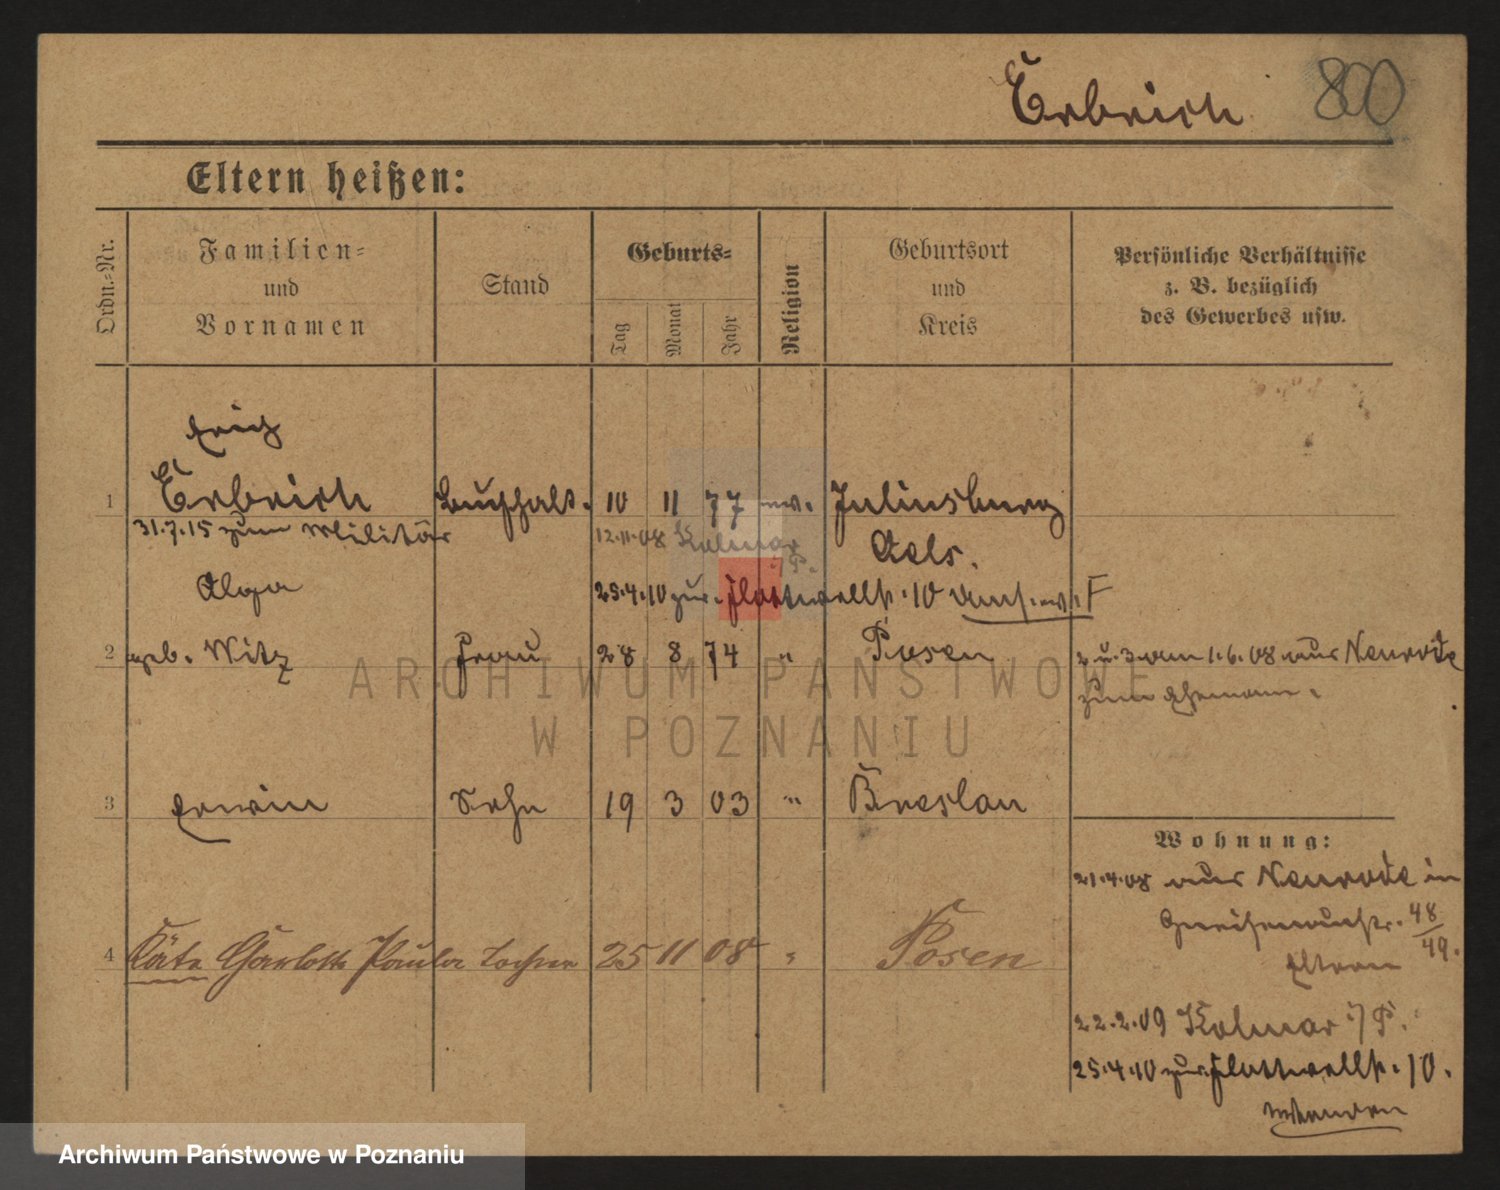 Erbrich 800
Eltern heißen:
Ordn.-Nr.
Familien-
und
Vornamen
Stand
Geburts-
Tag
Monat
Jahr
Religion
Geburtsort
und
Kreis
Persönliche Verhältnisse
z. B. bezüglich
des Gewerbes usw.
Erich
1 Erbrich Buchhalt. 10 11 77 ev. Juliusburg
31.7.15 zum Militär 12.11.08 Kolmar Oels.
i/P.
Olga 25.4.10 zur. Flottwellstr. 10
2 geb. Witz Frau 28 8 74 " Posen 2 u. 3 am 1.6.08 aus Neurode
zum Ehemann.
ARCHIWUM PAŃSTWOWE
W POZNANIU
3 Erwin Sohn 19 3 03 " Breslau
Wohnung:
21.4.08 aus Neurode in
Gneisenaustr. 48/49.
4 Käte Charlotte Paula Tochter 25 11 08 " Posen
Eltern
22.2.09 Kolmar i/P.
25.4.10 zur. Flottwellstr. 10.
Archiwum Państwowe w Poznaniu